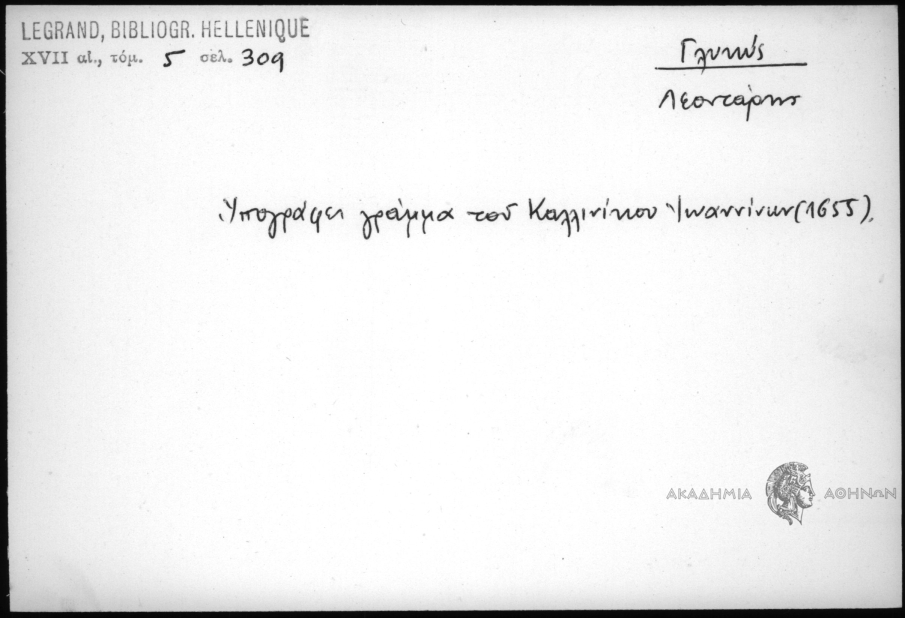 LEGRAND, BIBLIOGR. HELLENIQUE
XVII αἰ., τόμ. 5 σελ. 309
Γλυκύς
Λεοντάρης
Ὑπογράφει γράμμα τοῦ Καλλινίκου Ἰωαννίνων (1655).
ΑΚΑΔΗΜΙΑ ΑΘΗΝΩΝ